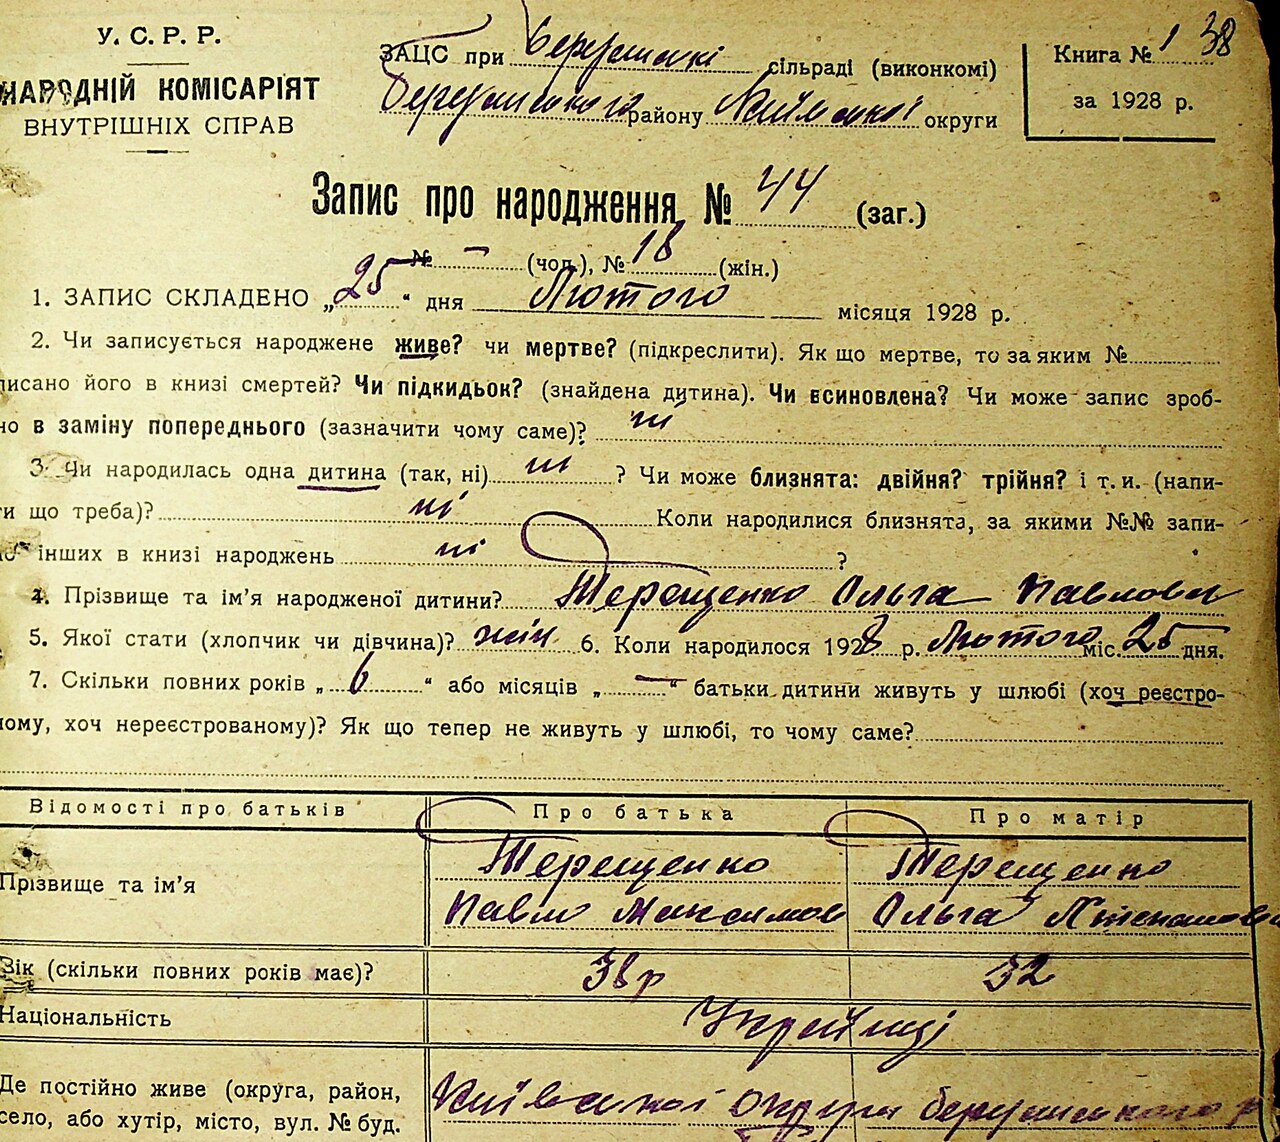 У. С. Р. Р.
НАРОДНІЙ КОМІСАРІЯТ
ВНУТРІШНІХ СПРАВ
ЗАЦС при сільраді (виконкомі)
району Київської округи
Книга № 1 38
за 1928 р.
Запис про народження № 44 (заг.)
№ – (чол.), № 18 (жін.)
1. ЗАПИС СКЛАДЕНО „25“ дня Лютого місяця 1928 р.
2. Чи записується народжене живе? чи мертве? (підкреслити). Як що мертве, то за яким №
писано його в книзі смертей? Чи підкидьок? (знайдена дитина). Чи всиновлена? Чи може запис зроб-
но в заміну попереднього (зазначити чому саме)? ні
3. Чи народилась одна дитина (так, ні) ні ? Чи може близнята: двійня? трійня? і т. и. (напи-
и що треба)? ні Коли народилися близнята, за якими №№ запи-
но інших в книзі народжень ні ?
4. Прізвище та ім’я народженої дитини? Терещенко Ольга Павловн
5. Якої стати (хлопчик чи дівчина)? жін 6. Коли народилося 1928 р. Лютого міс. 25 дня.
7. Скільки повних років „6“ або місяців „—“ батьки дитини живуть у шлюбі (хоч реєстро-
ному, хоч нереєстрованому)? Як що тепер не живуть у шлюбі, то чому саме?
Відомості про батьків Про батька Про матір
Прізвище та ім’я
Терещенко Терещенко
Павло Максимов Ольга
Вік (скільки повних років має)? 38 р 32
Національність Українці
Де постійно живе (округа, район, Київської округи
село, або хутір, місто, вул. № буд.